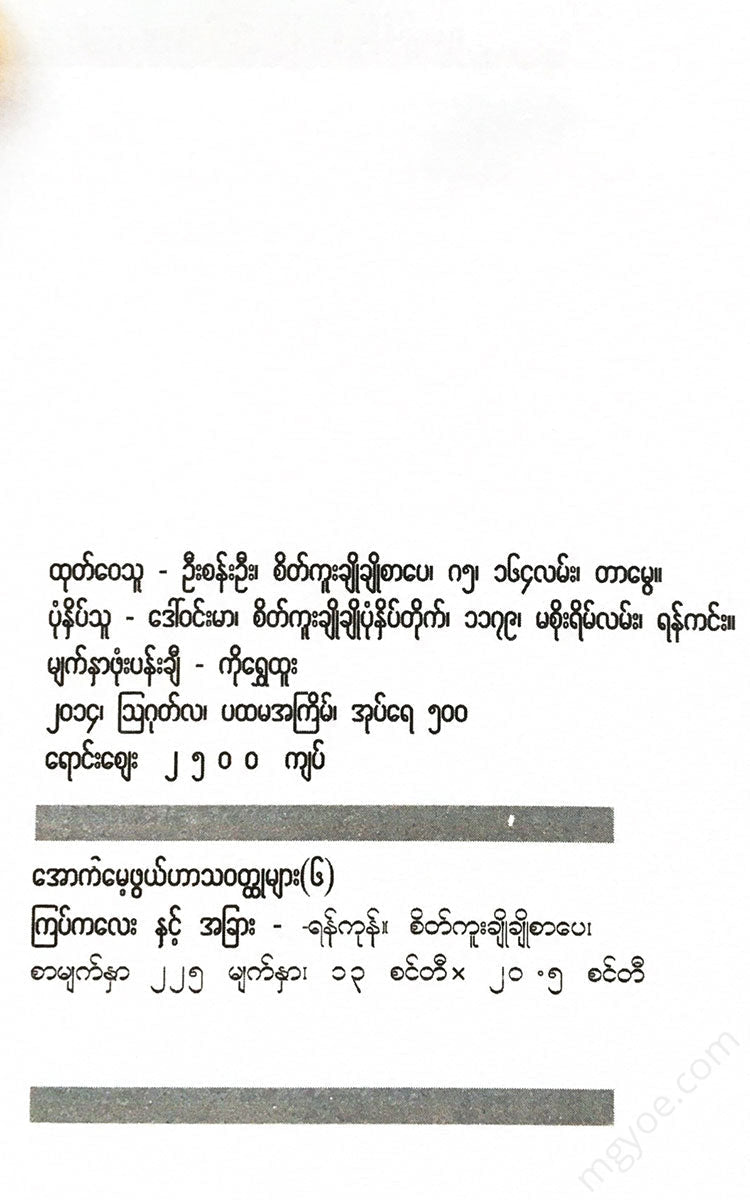 ထုတ်ဝေသူ - ဦးစန်းဦး၊ စိတ်ကူးချိုချိုစာပေ၊ ဂ၅၊ ၁၆၄လမ်း၊ တာမွေ။
ပုံနှိပ်သူ - ဒေါ်ဝင်းမာ၊ စိတ်ကူးချိုချိုပုံနှိပ်တိုက်၊ ၁၁၇၉၊ မစိုးရိမ်လမ်း၊ ရန်ကင်း။
မျက်နှာဖုံးပန်းချီ - ကိုရွှေထူး
၂၀၁၄၊ ဩဂုတ်လ၊ ပထမအကြိမ်၊ အုပ်ရေ ၅၀၀
ရောင်းဈေး ၂ ၅ ၀ ၀ ကျပ်
အောက်မေ့ဖွယ်ဟာသဝတ္ထုများ(၆)
ကြပ်ကလေး နှင့် အခြား - -ရန်ကုန်။ စိတ်ကူးချိုချိုစာပေ၊
စာမျက်နှာ ၂၂၅ မျက်နှာ၊ ၁၃ စင်တီ× ၂၀ .၅ စင်တီ
mgyoe.com